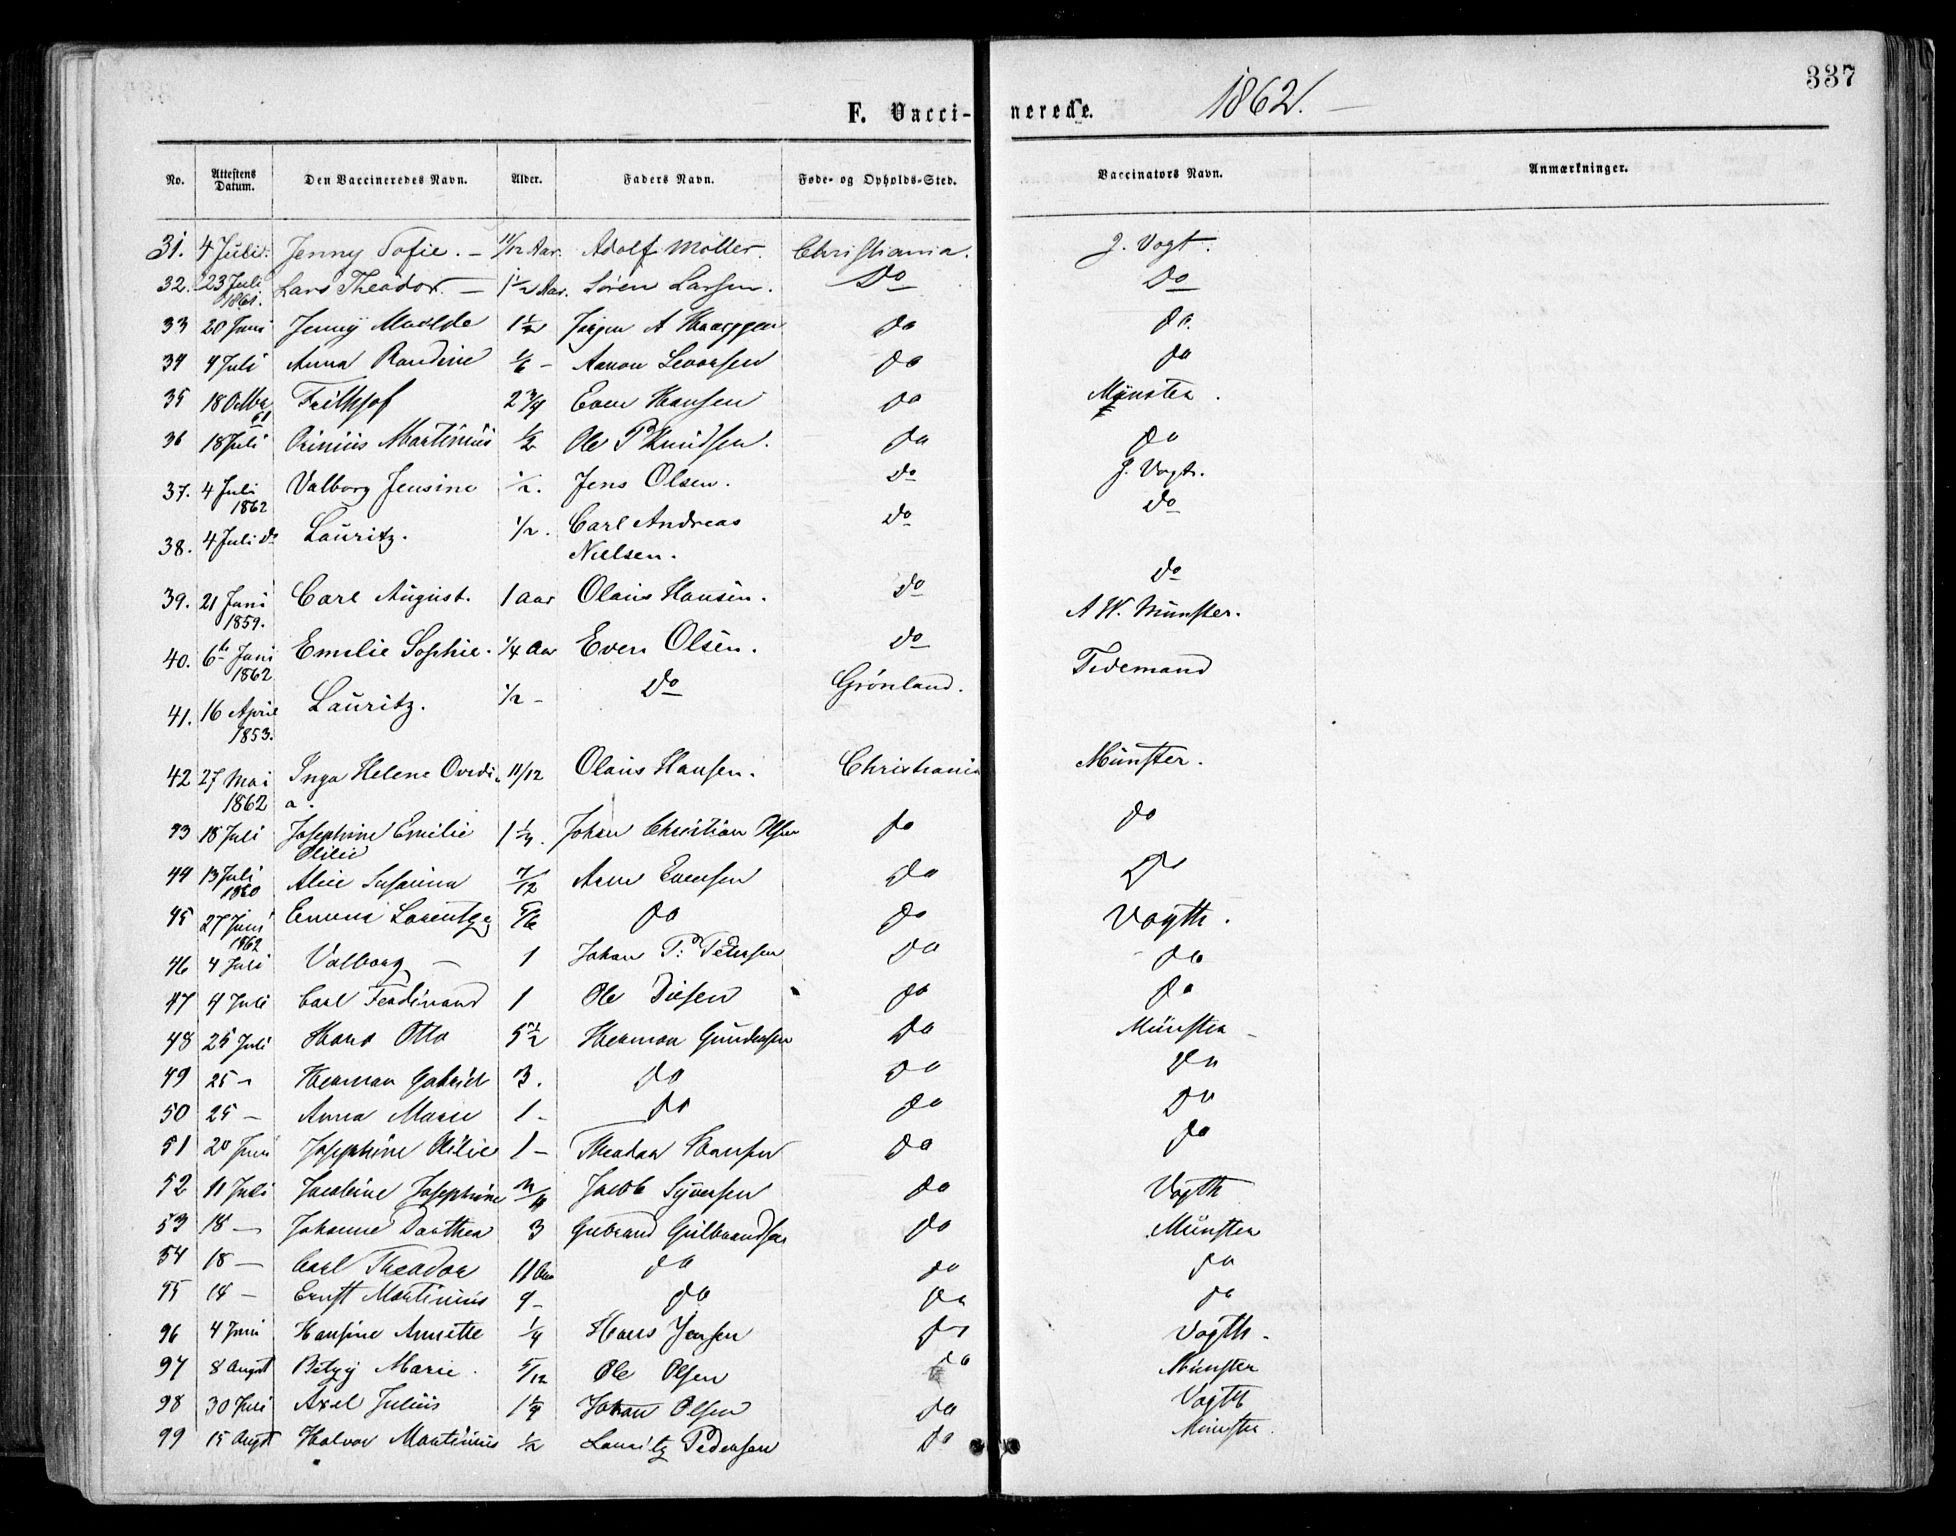 337
F. Vaccinerede. 1862.
No. Attestens Datum. Den Vaccineredes Navn. Alder. Faders Navn. Føde- og Opholds-Sted. Vaccinators Navn. Anmærkninger.
31. 4 Juli. Jenny Sofie. - 11/12 Aar. Adolf Møller. Christiania. J. Vogt.
32. 23 Juli 1861. Lars Theodor. - 1 1/2 Aar. Sören Larsen. Do Do
33 20 Juni Jenny Matilde 1 1/2 Jørgen A do do.
34 4 Juli Anna Randine 1/6 - Aanon do do
35 18 Octbr 61 Frithjof 2 3/4 Even Hansen do Münster.
36 18 Juli Martinius 1/2 Ole P Knudsen. do do
37. 4 Juli 1862 Valborg Jensine 1/2. Jens Olsen. do J. Vogt.
38. 4 Juli do Lauritz. 1/2. Carl Andreas Nielsen. do do
39. 21 Juni 1859. Carl August. 1 aar Olaus Hansen. do do
40. 6te Juni 1862 Emilie Sophie. 1/4 aar Even Olsen. do A W. Münster.
41. 16 April 1853. Lauritz. 1/2 - Do Grönland. Tidemand
42 27 Mai 1862 Inga Helene Ovedia. 11/12 Olaus Hansen. Christiania Münster.
43 18 Juli Josephine Emilie Otilie 1 1/4. Johan Christian Olsen do do
44 13 Juli 1860 Alice Susanna 7/12 Arne Evensen do Do
45 27 Juni 1862 5/6 do do Vogth.
46 4 Juli Valborg - 1 Johan P: Petersen do do
47 4 Juli Carl Ferdinand 1 Ole Diesen do do
48 25 Juli Hans Otto 5 1/2 Herman Gundersen do Münster -
49 25 - Herman Gabriel 3. do do do
50 25 - Anna Marie 1 - do do do
51 20 Juni Josephine Otilie 1 - Theodor Hansen do do
52 11 Juli Jacobine Josephine Jacob Syversen do Vogth
53 18 - Johanne Dorthea 3 Gulbrandsen do Münster
54 18 - Carl Theodor 11 Aar do do do
55 18 - Ernst Martinius 9 - do do do
96 4 Juni Hansine Annette 1/4 Hans Jensen do Vogth -
97 8 Augst Betzy Marie. 5/12 Ole Olsen do Münster
98 30 Juli Axel Julius 1 1/4 Johan Olsen do Vogth
99 15 Augst Halvor Martinius 1/2 Lauritz Pedersen do Münster.